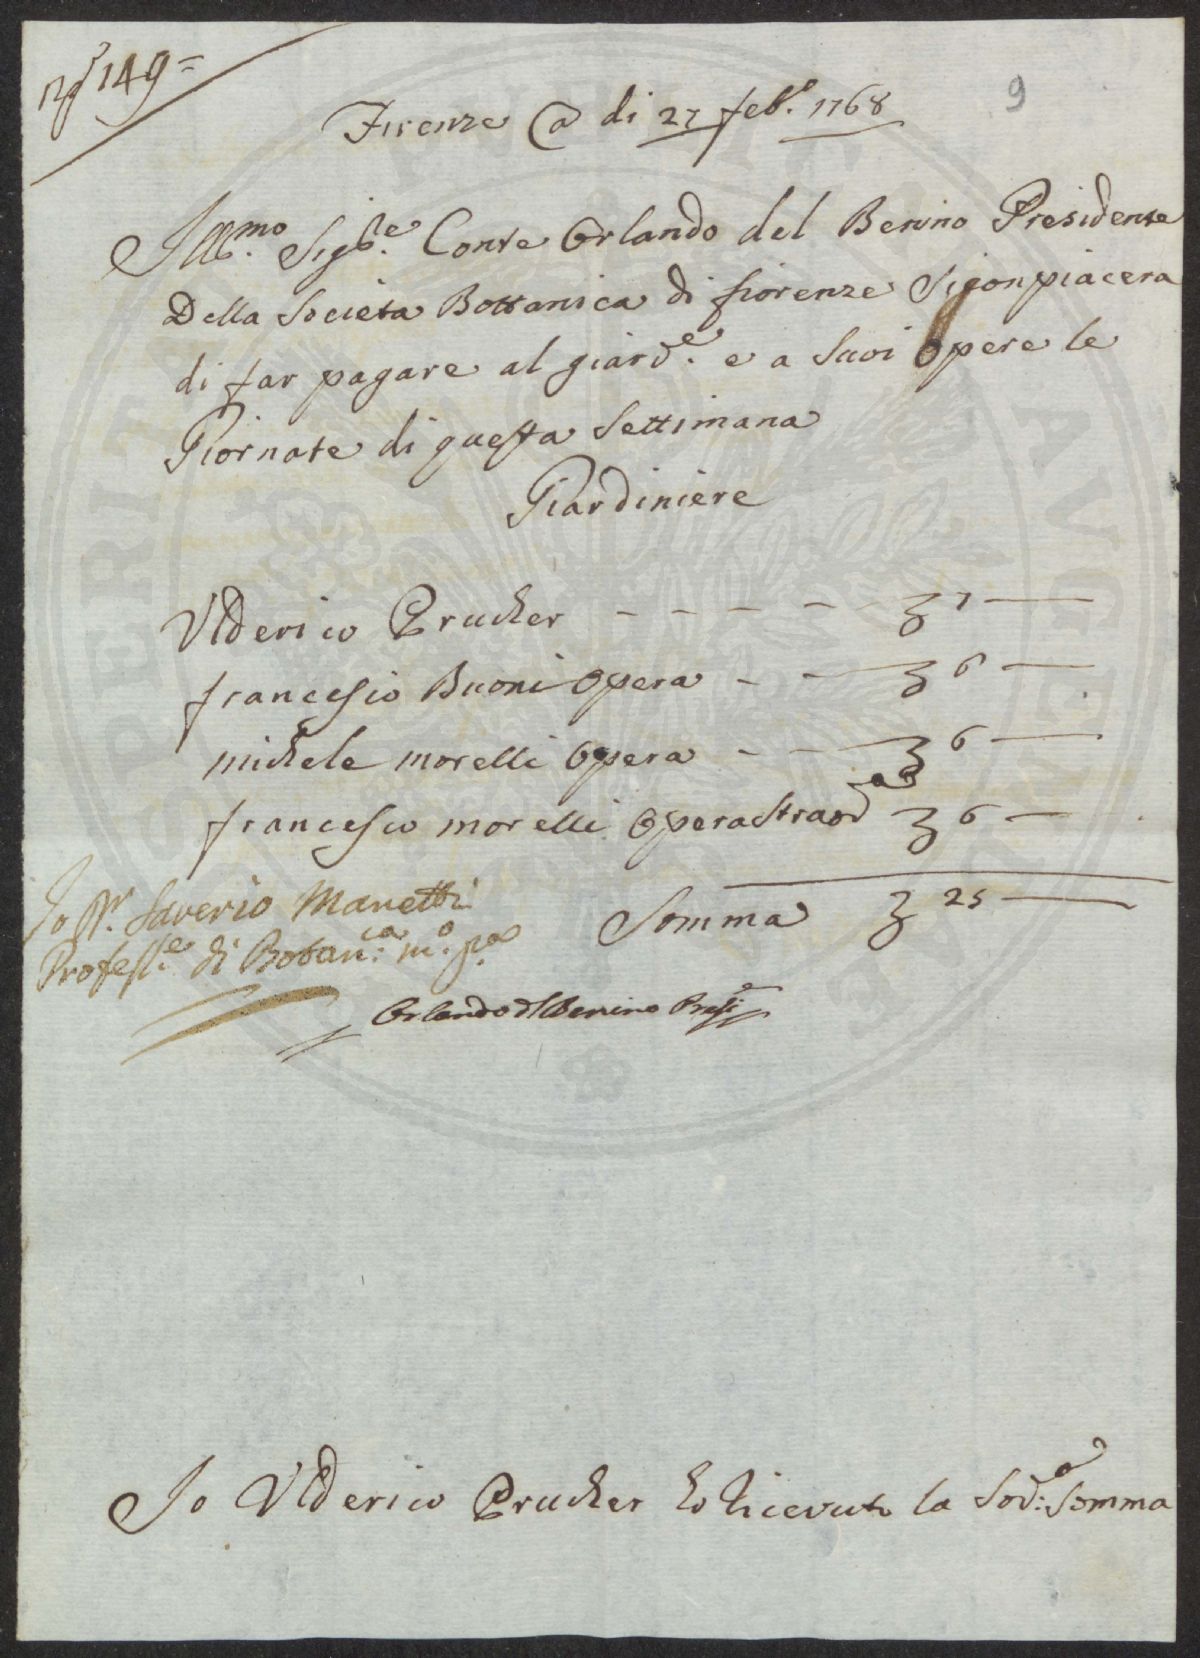 N.º 149=
9
Firenze @ di 27 feb.º 1768
Ill.mo Sig.re Conte Orlando del Benino Presidente
Della Societa Bottanica di fiorenze Si conpiacera
di far pagare al giard.e e a Suoi Opere le
Giornate di questa Settimana
Giardiniere
Ulderico Prucker - - - - 7
francescio Buoni Opera - - 6
michele morelli Opera - - 6
francesco morelli Opera Straord 6
Somma 25
Io Dr. Saverio Manetti
Profess.e di Botan.ca m.º p.a
Orlando del Benino Presi.e
Io Ulderico Prucker ho Ricevuto la Sod.a Somma